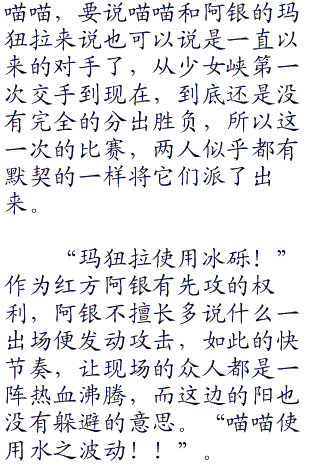 喵喵，要说喵喵和阿银的玛
狃拉来说也可以说是一直以
来的对手了，从少女峡第一
次交手到现在，到底还是没
有完全的分出胜负，所以这
一次的比赛，两人似乎都有
默契的一样将它们派了出
来。
“玛狃拉使用冰砾！”
作为红方阿银有先攻的权
利，阿银不擅长多说什么一
出场便发动攻击，如此的快
节奏，让现场的众人都是一
阵热血沸腾，而这边的阳也
没有躲避的意思。“喵喵使
用水之波动！！”。